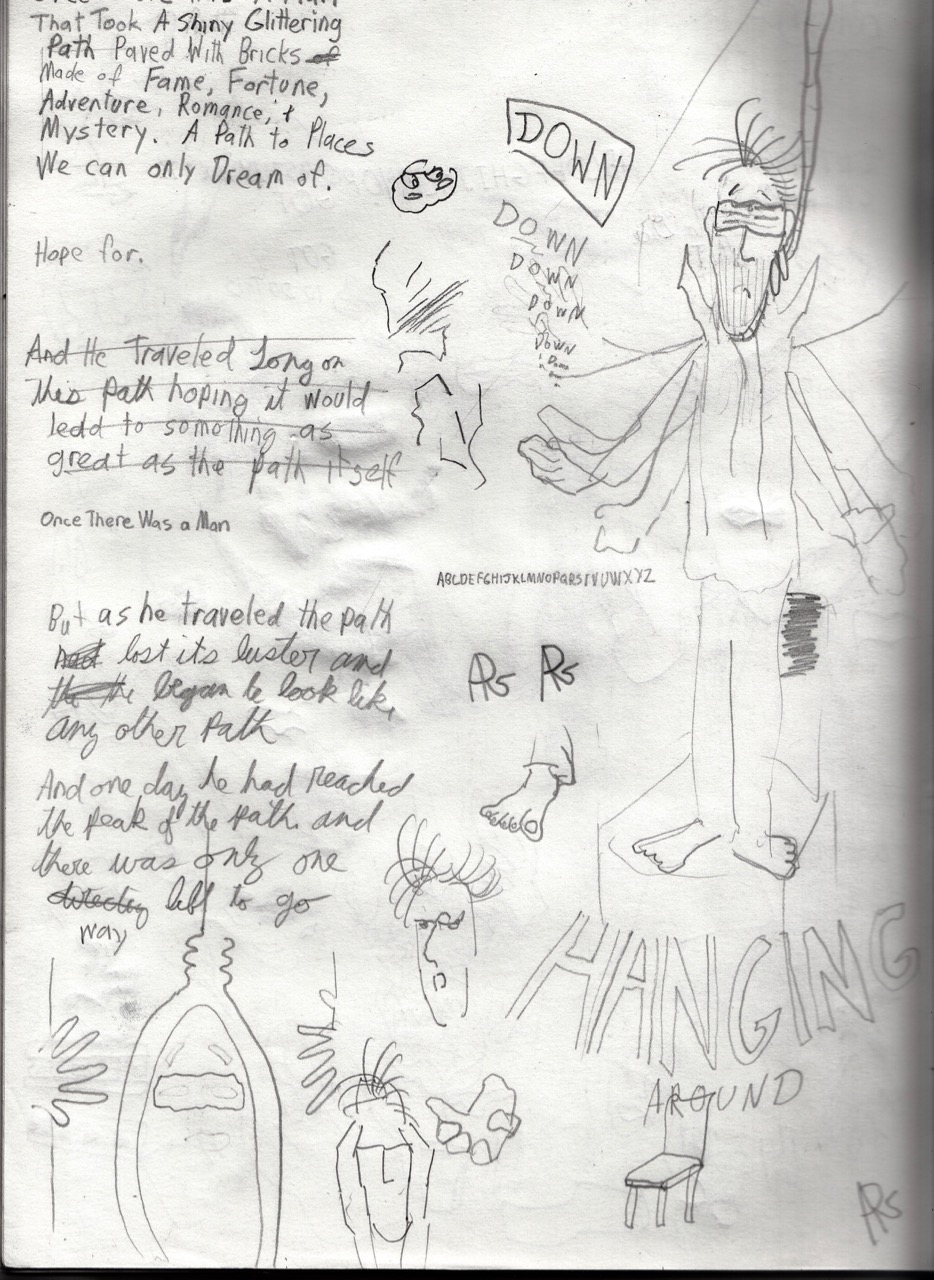 That Took A Shiny Glittering
Path Paved With Bricks of
Made of Fame, Fortune,
Adventure, Romance, +
Mystery. A Path to Places
We can only Dream of.
Hope for.
And He Traveled Long on
this path hoping it would
lead to something as
great as the path itself
Once There Was a Man
But as he traveled the path
lost its luster and
the began to look like
any other path
And one day he had reached
the peak of the path and
there was only one
left to go
way
DOWN
DOWN
DOWN
DOWN
DOWN
Down
ABCDEFGHIJKLMNOPQRSTVUWXYZ
HANGING
AROUND